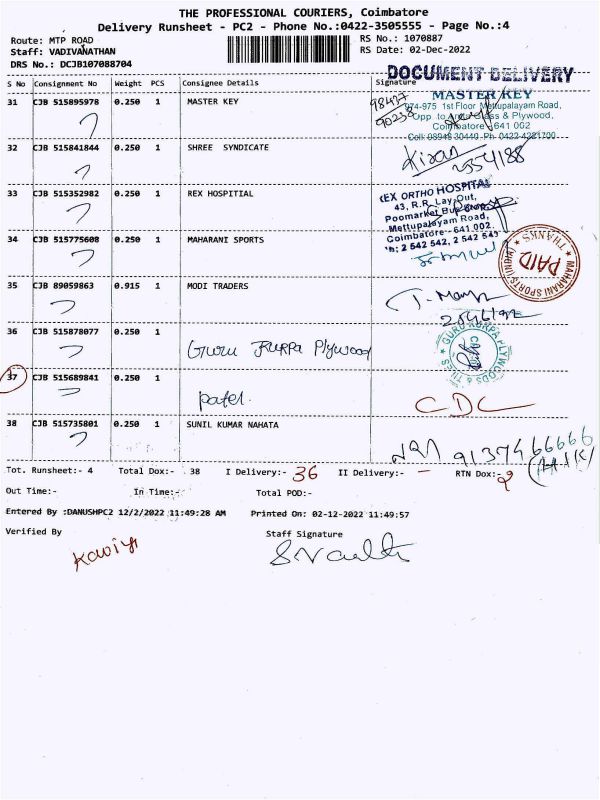 THE PROFESSIONAL COURIERS, Coimbatore
Delivery Runsheet - PC2 - Phone No.:0422-3505555 - Page No.:4
Route: MTP ROAD
RS No.: 1070887
Staff: VADIVANATHAN
RS Date: 02-Dec-2022
DRS No.: DCJB107088704
DOCUMENT DELIVERY
S No Consignment No Weight PCS Consignee Details Signature
31 CJB 515895978 0.250 1 MASTER KEY
98437
90238
MASTER KEY
974-975 1st Floor Mettupalayam Road,
Opp. to Glass & Plywood,
Coimbatore 641 002
Cell: 08948 30449 Ph. 0422 4381700
32 CJB 515841844 0.250 1 SHREE SYNDICATE
Kiran
2354188
33 CJB 515352982 0.250 1 REX HOSPITIAL
REX ORTHO HOSPITAL
43, R.R. Lay Out,
Poomarket Bus Stop,
Mettupalayam Road,
Coimbatore - 641 002.
Ph: 2 542 542, 2 542 543
34 CJB 515775608 0.250 1 MAHARANI SPORTS
THANKS
PAID
MAHARANI SPORTS
35 CJB 89059863 0.915 1 MODI TRADERS
36 CJB 515878077 0.250 1
Guru Kurpa Plywood
GURU KURPA PLYWOODS & TILES
37 CJB 515689841 0.250 1
patel.
CDC
38 CJB 515735801 0.250 1 SUNIL KUMAR NAHATA
9137466666
Tot. Runsheet:- 4 Total Dox:- 38 I Delivery:- 36 II Delivery:- – RTN Dox:- 2
Out Time:- In Time:- Total POD:-
Entered By :DANUSHPC2 12/2/2022 11:49:28 AM Printed On: 02-12-2022 11:49:57
Verified By Staff Signature
Kaviya